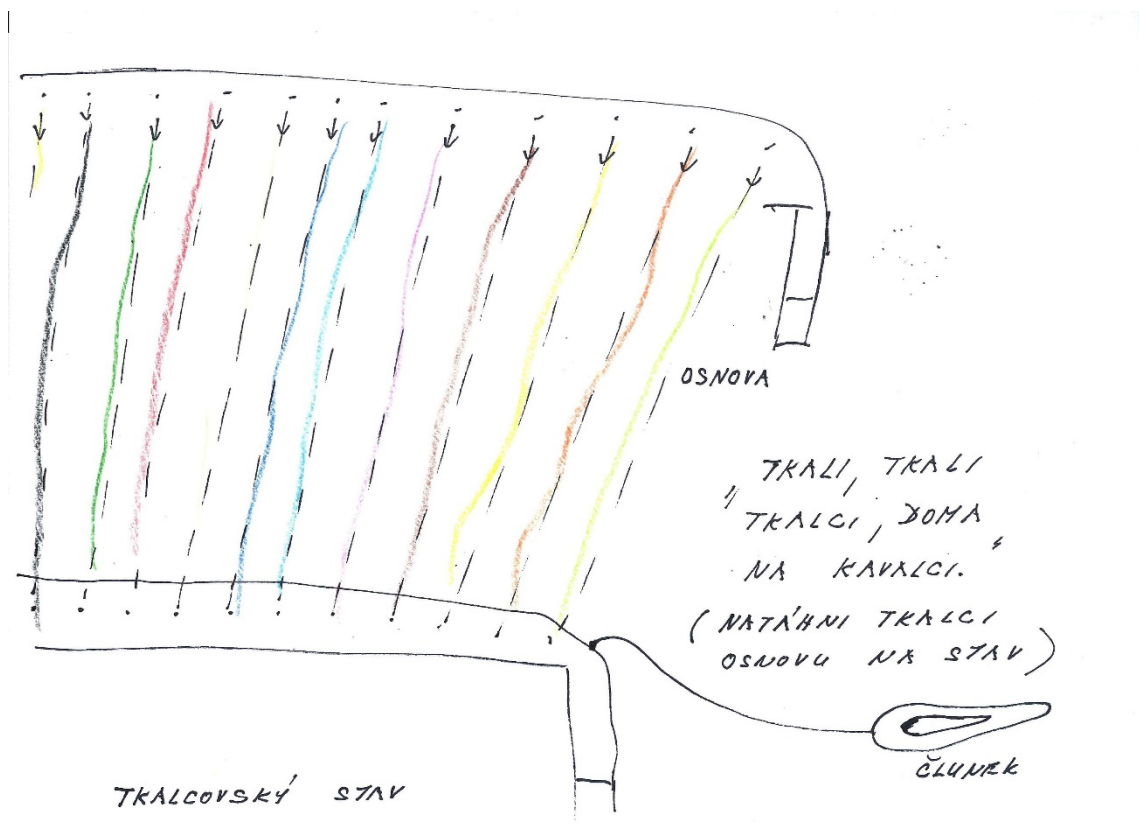 OSNOVA
„TKALI, TKALI
TKALCI, DOMA
NA KAVALCI.“
(NATÁHNI TKALCI
OSNOVU NA STAV)
ČLUNEK
TKALCOVSKÝ STAV